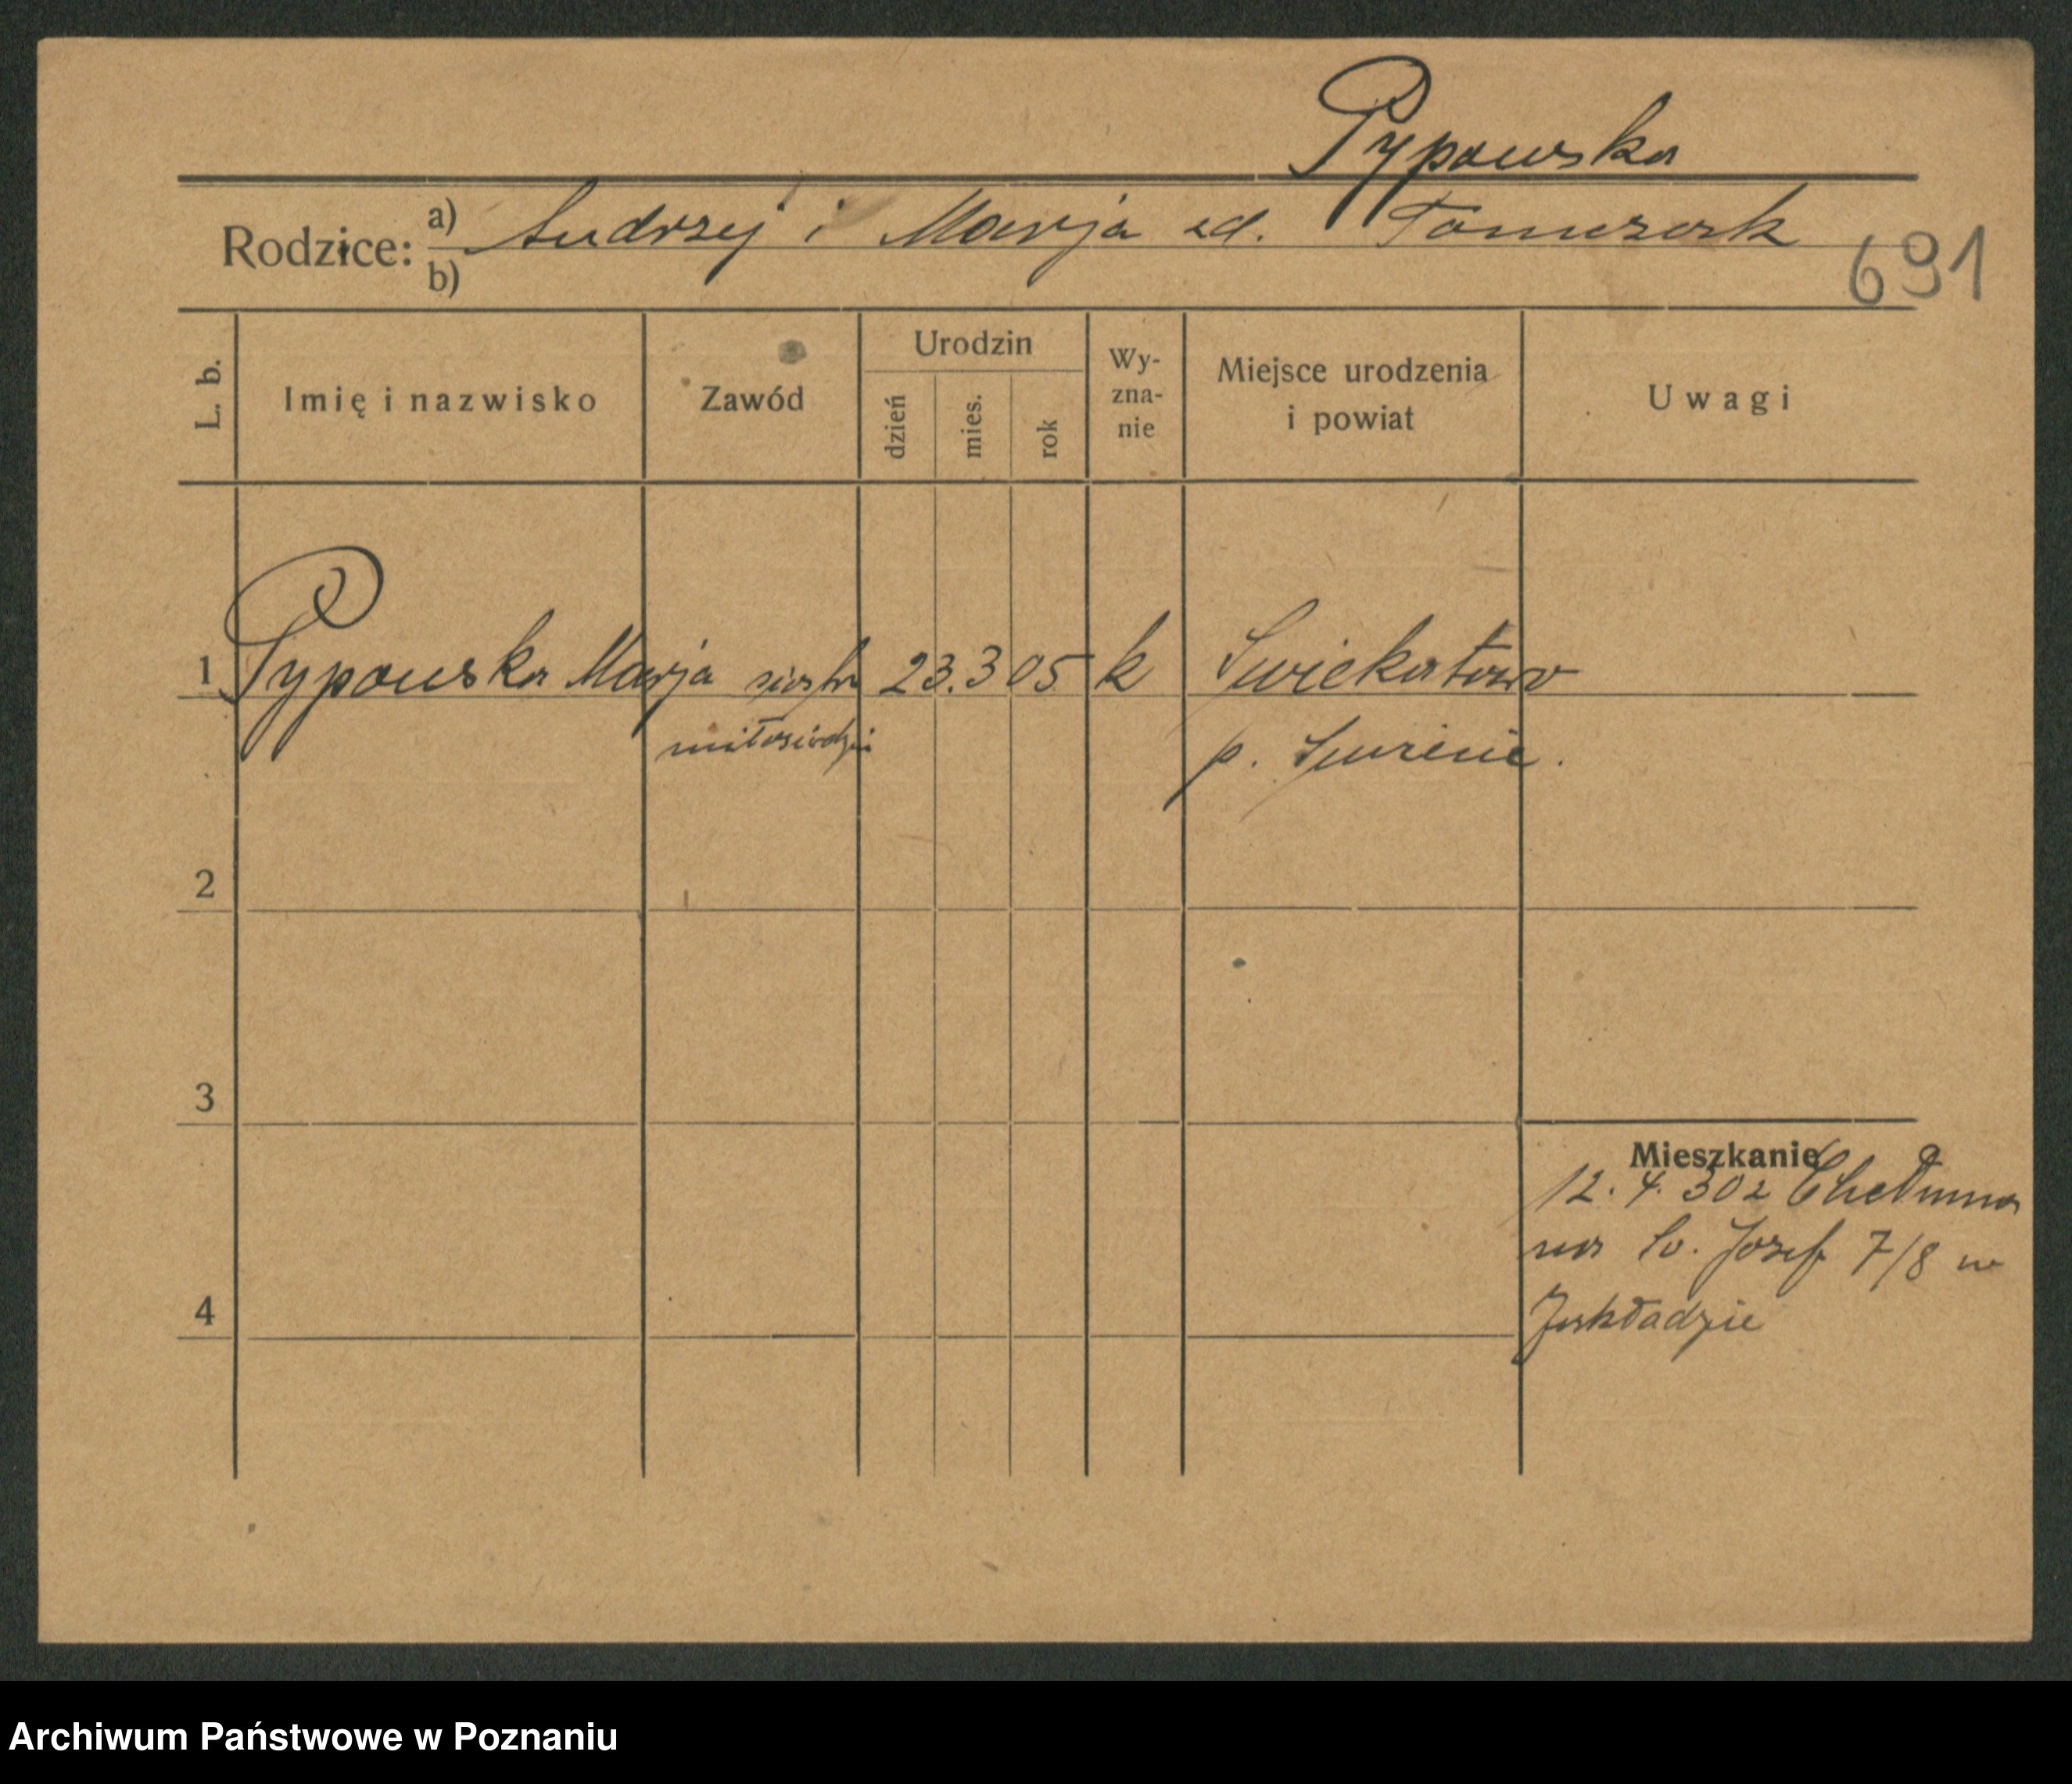 Pypowska
Rodzice: a) Andrzej i Marja zd. Tomczak
b)
691
L. b.
Imię i nazwisko
Zawód
Urodzin
dzień
mies.
rok
Wy-
zna-
nie
Miejsce urodzenia
i powiat
Uwagi
1 Pypowska Marja siostra 23.3 05 k Swiekatowo
miłosierdzia p. Swiecie.
2
3
Mieszkanie
12. 4. 302 Chełmna
na Sw. Józef 7/8 w
4 Zakładzie
Archiwum Państwowe w Poznaniu